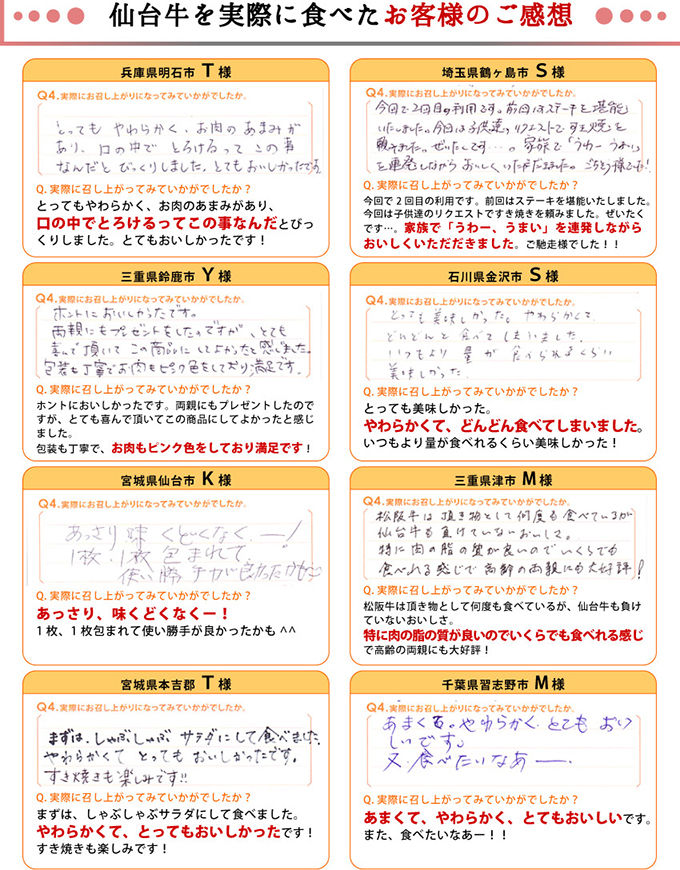 仙台牛を実際に食べたお客様のご感想
兵庫県明石市 T 様
Q4.実際にお召し上がりになってみていかがでしたか。
とっても やわらかく、お肉のあまみが
あり、口の中で とろけるって この事
なんだと びっくりしました。とてもおいしかったです。
Q. 実際に召し上がってみていかがでしたか？
とってもやわらかく、お肉のあまみがあり、
口の中でとろけるってこの事なんだとびっ
くりしました。とてもおいしかったです！
埼玉県鶴ヶ島市 S 様
Q4.実際にお召し上がりになってみていかがでしたか。
今回で2回目の利用です。前回はステーキを堪能
いたしました。今回は子供達のリクエストですき焼を
頼みました。ぜいたくです…。家族で「うわー うまい」
を連発しながら おいしくいただきました。ごちそう様でした！
Q. 実際に召し上がってみていかがでしたか？
今回で2回目の利用です。前回はステーキを堪能いたしました。
今回は子供達のリクエストですき焼きを頼みました。ぜいたく
です…。家族で「うわー、うまい」を連発しながら
おいしくいただだきました。ご馳走様でした！！
三重県鈴鹿市 Y 様
Q4.実際にお召し上がりになってみていかがでしたか。
ホントにおいしかったです。
両親にもプレゼントをしたのですが、とても
喜んで頂いて この商品にしてよかったと感じました。
包装も丁寧でお肉もピンク色をしており満足です。
Q. 実際に召し上がってみていかがでしたか？
ホントにおいしかったです。両親にもプレゼントしたので
すが、とても喜んで頂いてこの商品にしてよかったと感じ
ました。
包装も丁寧で、お肉もピンク色をしており満足です！
石川県金沢市 S 様
Q4.実際にお召し上がりになってみていかがでしたか。
とっても美味しかった。やわらかくて、
どんどんと 食べて しまいました。
いつもより 量が 食べられるくらい
美味しかった。
Q. 実際に召し上がってみていかがでしたか？
とっても美味しかった。
やわらかくて、どんどん食べてしまいました。
いつもより量が食べれるくらい美味しかった！
宮城県仙台市 K 様
Q4.実際にお召し上がりになってみていかがでしたか。
あっさり味 くどくなくー！
1枚、1枚 包まれて、
使い勝手が良かったかも^^
Q. 実際に召し上がってみていかがでしたか？
あっさり、味くどくなくー！
1枚、1枚包まれて使い勝手が良かったかも ^^
三重県津市 M 様
Q4.実際にお召し上がりになってみていかがでしたか。
松阪牛は頂き物として何度も食べているが
仙台牛も負けていないおいしさ。
特に肉の脂の質が良いのでいくらでも
食べれる感じで高齢の両親にも大好評！
Q. 実際に召し上がってみていかがでしたか？
松阪牛は頂き物として何度も食べているが、仙台牛も負け
ていないおいしさ。
特に肉の脂の質が良いのでいくらでも食べれる感じ
で高齢の両親にも大好評！
宮城県本吉郡 T 様
Q4.実際にお召し上がりになってみていかがでしたか。
まずは、しゃぶしゃぶ サラダにして食べました。
やわらかくて とっても おいしかったです。
すき焼きも楽しみです!!
Q. 実際に召し上がってみていかがでしたか？
まずは、しゃぶしゃぶサラダにして食べました。
やわらかくて、とってもおいしかったです！
すき焼きも楽しみです！
千葉県習志野市 M 様
Q4.実際にお召し上がりになってみていかがでしたか。
あまくて。やわらかく、とても おい
しいです。
又、食べたいなあー。
Q. 実際に召し上がってみていかがでしたか？
あまくて、やわらかく、とてもおいしいです。
また、食べたいなあー！！